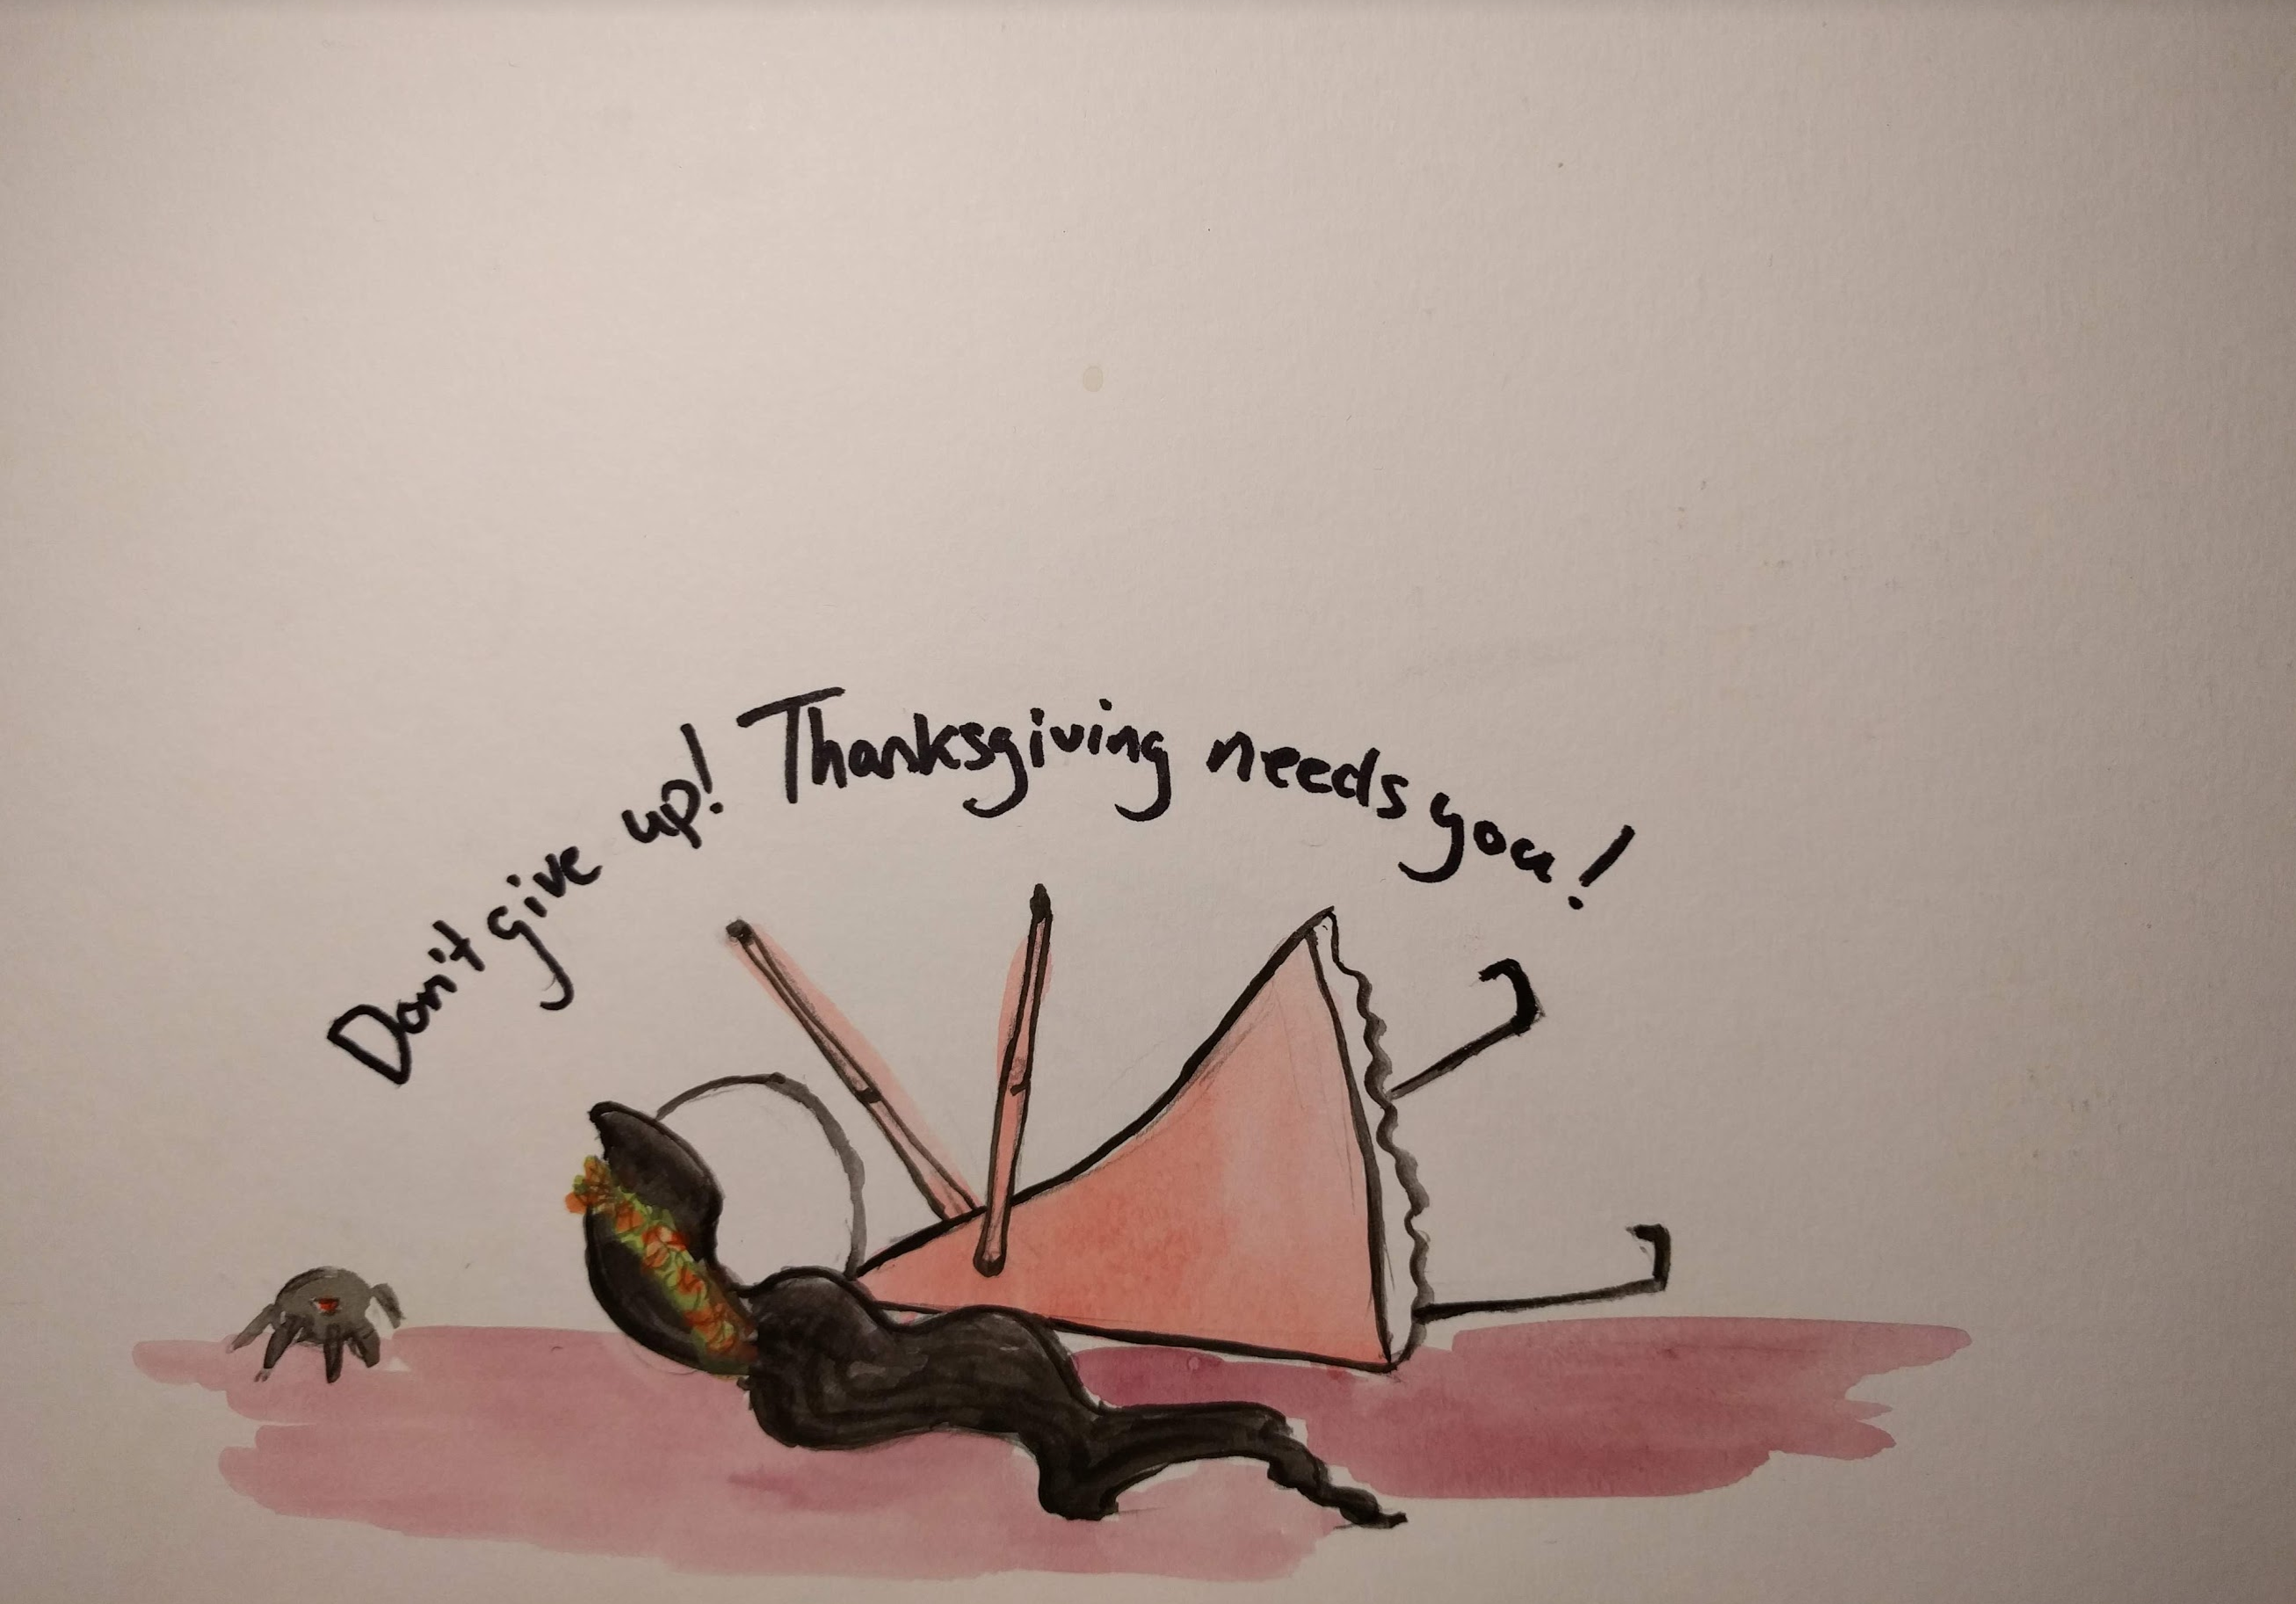 Don't give up! Thanksgiving needs you!